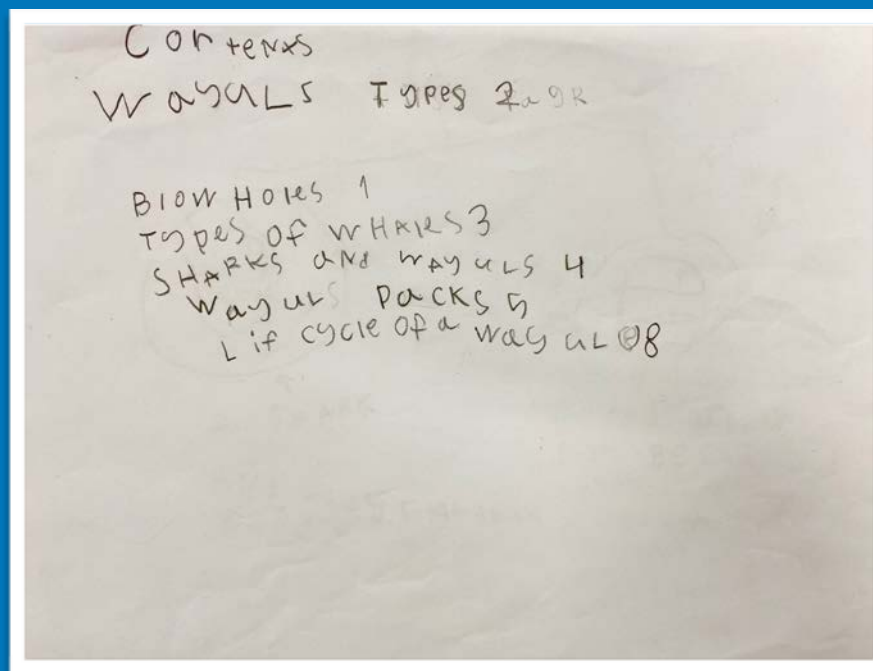 Contenxs
WayuLs Types
BlOW HOles 1
Types Of WHAles 3
SHARKS aNd WAyuLS 4
WayuLs PacKS 5
Lif cycle Of a wayuL 8